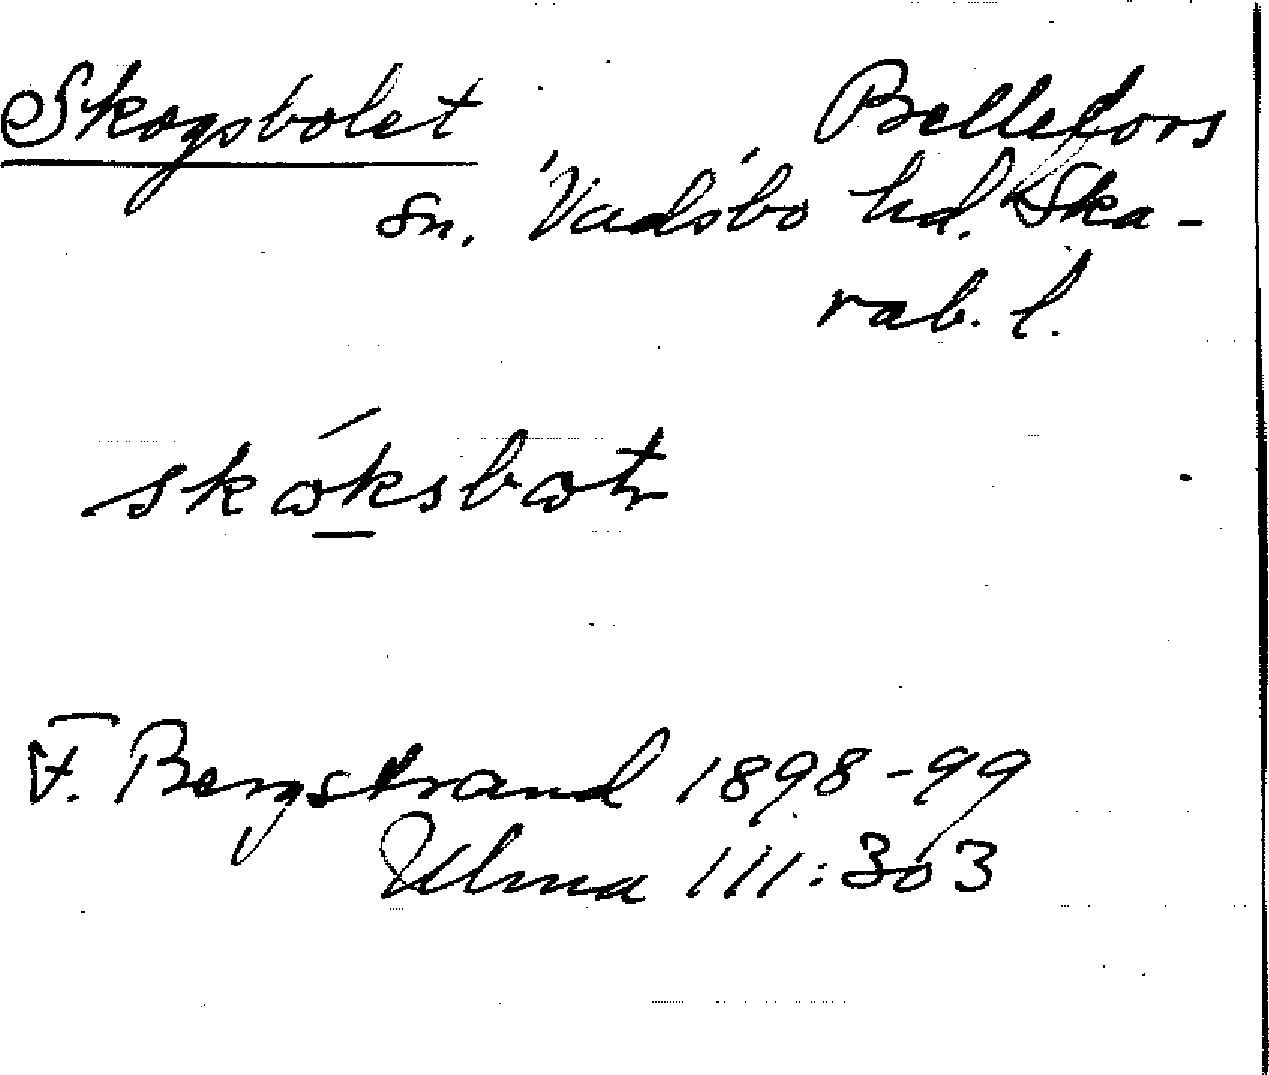 Skogsbolet Bellefors
sn. Vadsbo hd. Ska-
rab. l.
F. Bergstrand 1898-99
Ulma 111:303